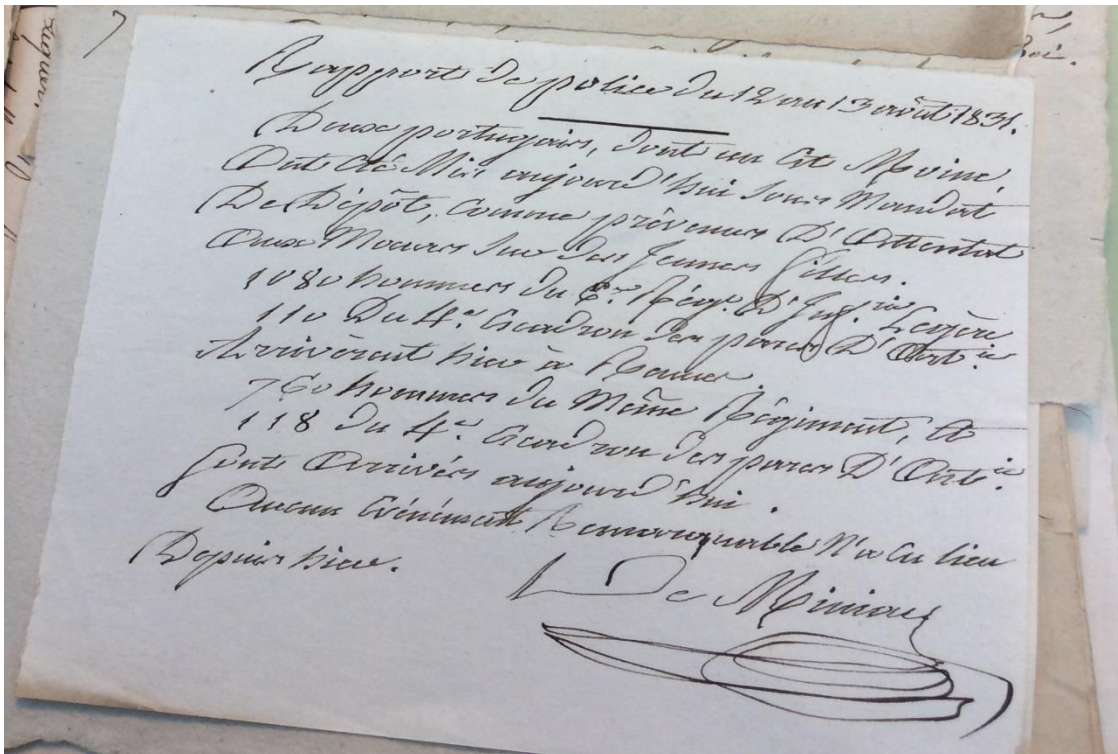 Rapport de police du 12 au 13 août 1831.
Deux portugais, dont un est Moine,
Ont été Mis aujourd'hui sous Mandat
De Dépôt, comme prévenus D'Attentat
Aux Moeurs sur des Jeunes Filles.
1080 hommes du 6.e Régt. D'Inf.rie Légère
110 Du 4.e Escadron des parcs D'Art.ie
Arrivèrent hier à Rennes.
760 hommes du Même Régiment, et
118 du 4.e Escadron des parcs D'Art.ie
Sont Arrivés aujourd'hui.
Aucun Evénement Remarquable N'a eu lieu
Depuis hier.
De Miniac